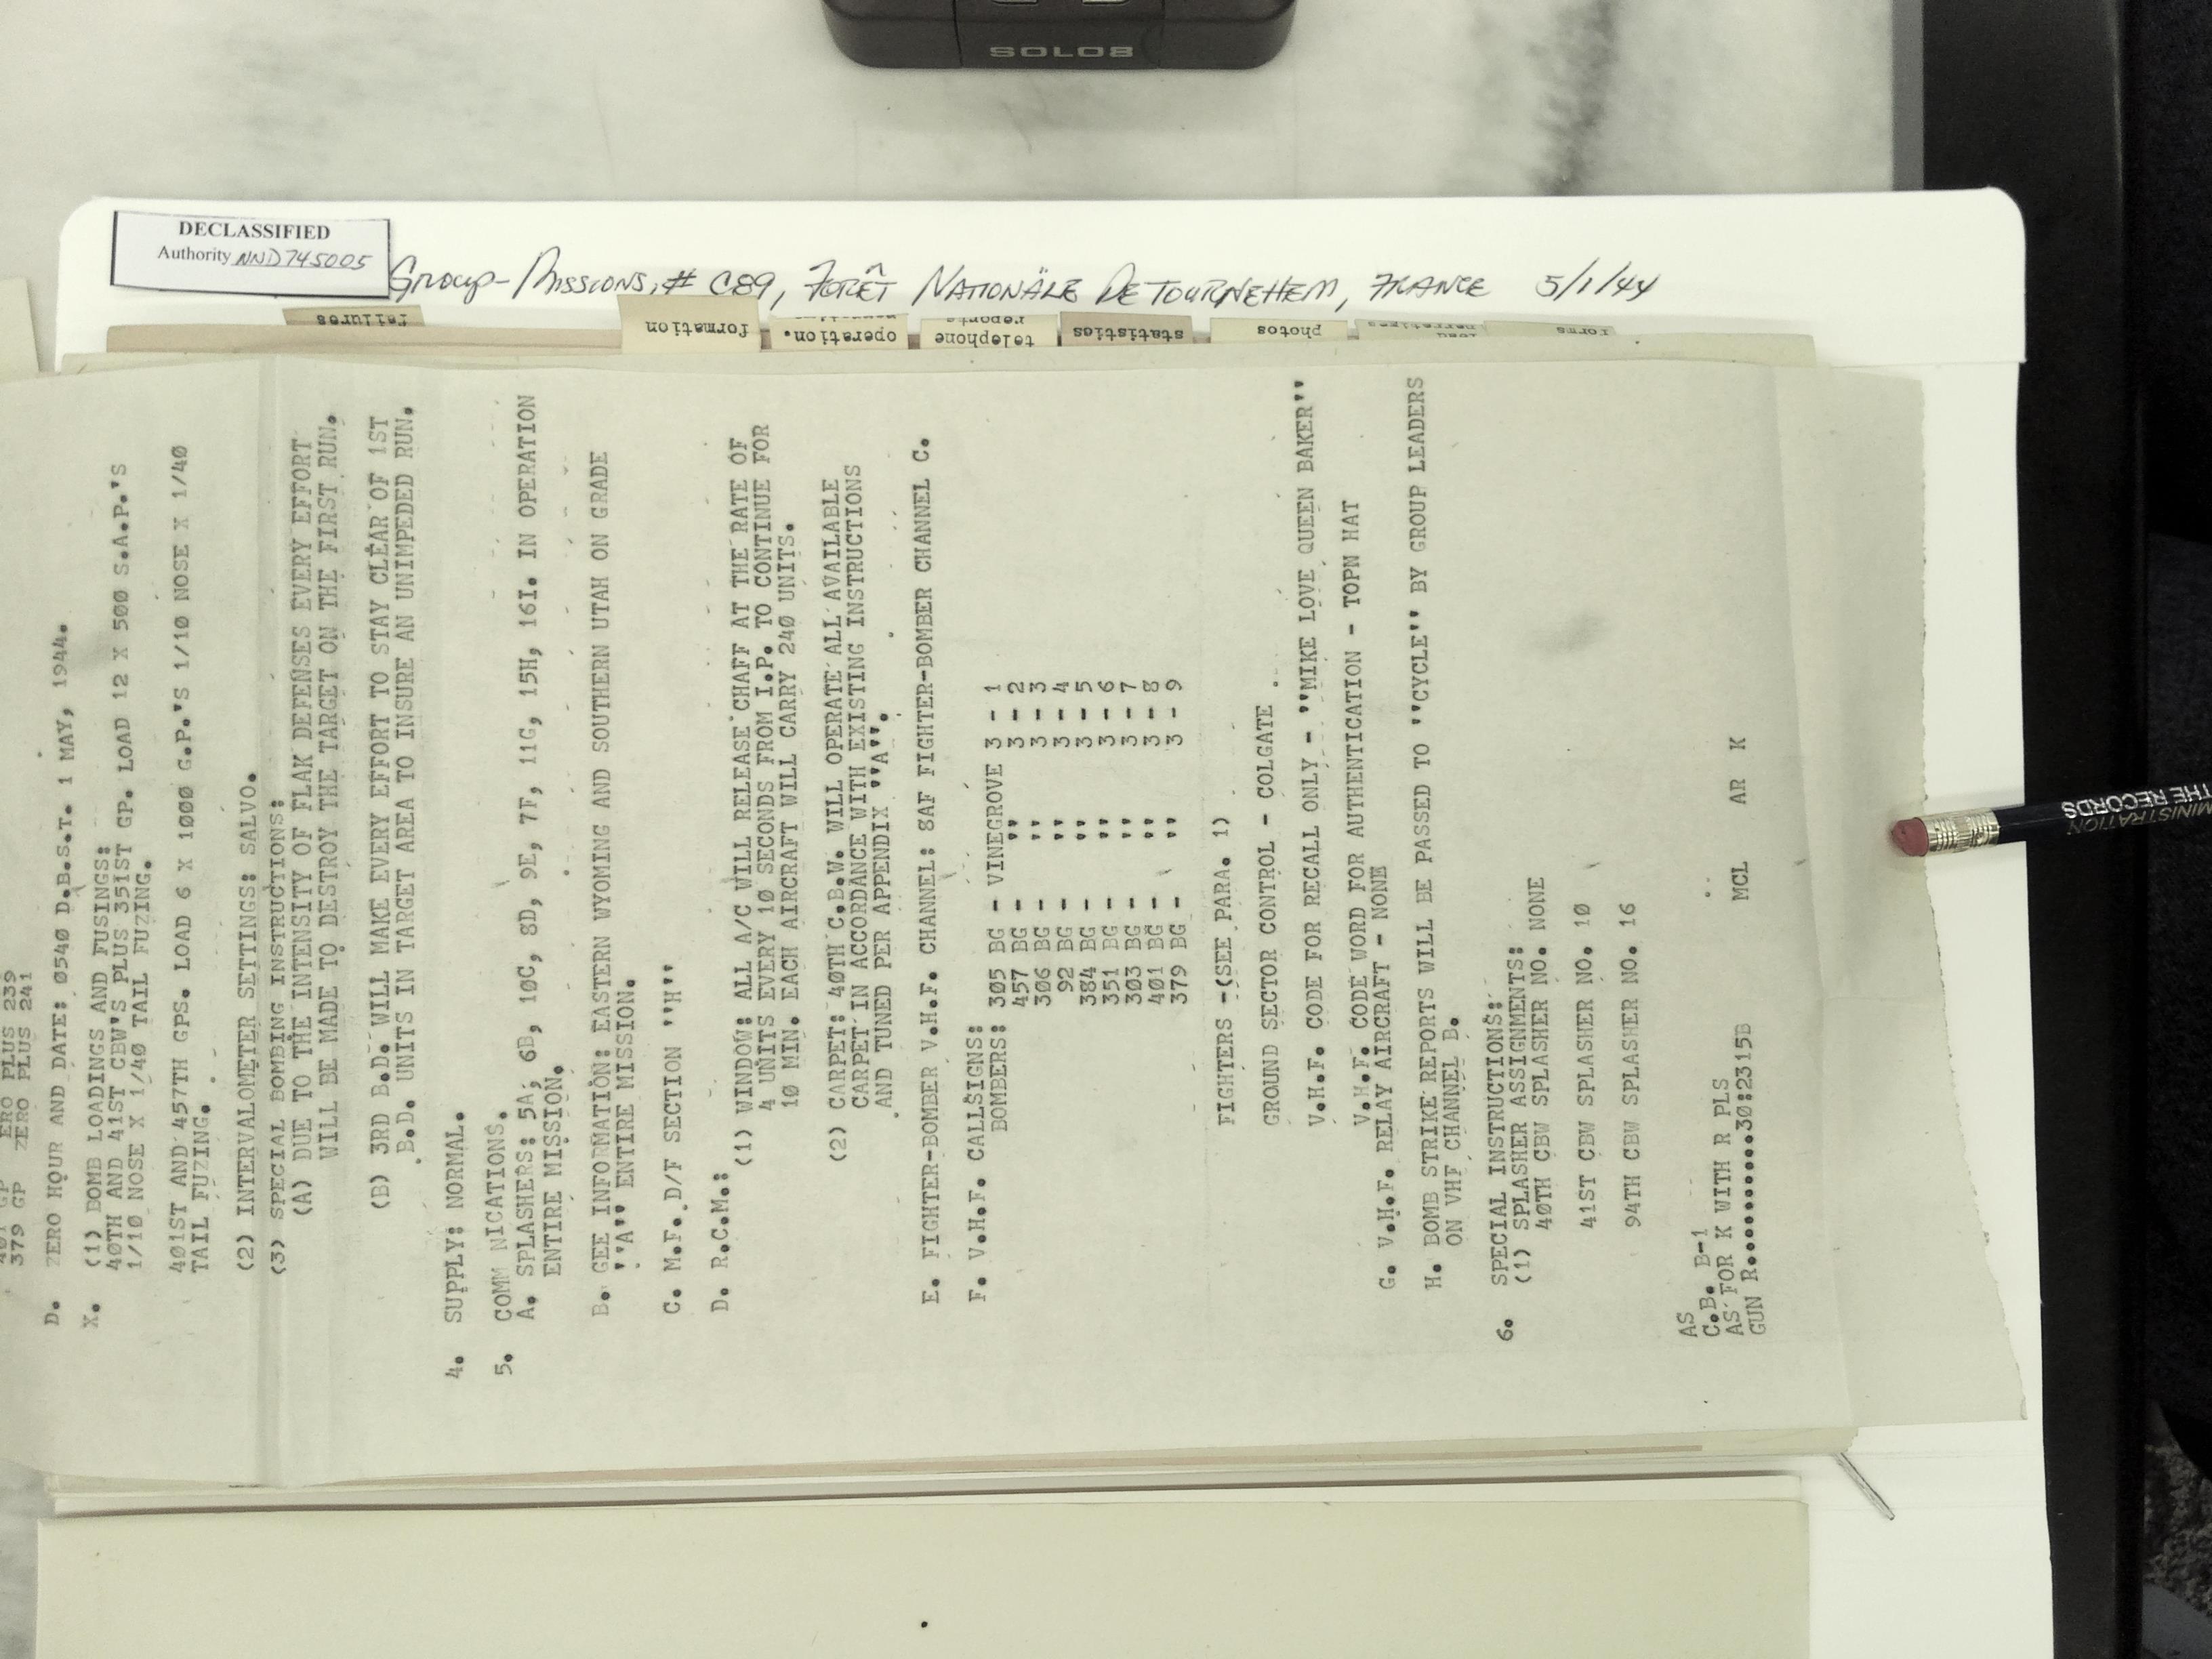 SOLO8
DECLASSIFIED
Authority NND745005
Group-Missions, # C89, Forêt Nationäle De Tournehem, France 5/1/44
failures
formation
operation.
telephone
reports
statistics
photos
forms
PLUS 239
379 GP ZERO PLUS 241
D. ZERO HOUR AND DATE: 0540 D.B.S.T. 1 MAY, 1944.
X. (1) BOMB LOADINGS AND FUSINGS:
40TH AND 41ST CBW'S PLUS 351ST GP. LOAD 12 X 500 S.A.P.'S
1/10 NOSE X 1/40 TAIL FUZING.
401ST AND 457TH GPS. LOAD 6 X 1000 G.P.'S 1/10 NOSE X 1/40
TAIL FUZING.
(2) INTERVALOMETER SETTINGS: SALVO.
(3) SPECIAL BOMBING INSTRUCTIONS:
(A) DUE TO THE INTENSITY OF FLAK DEFENSES EVERY EFFORT
WILL BE MADE TO DESTROY THE TARGET ON THE FIRST RUN.
(B) 3RD B.D. WILL MAKE EVERY EFFORT TO STAY CLEAR OF 1ST
B.D. UNITS IN TARGET AREA TO INSURE AN UNIMPEDED RUN.
4. SUPPLY: NORMAL.
5. COMM NICATIONS.
A. SPLASHERS: 5A, 6B, 10C, 8D, 9E, 7F, 11G, 15H, 16I. IN OPERATION
ENTIRE MISSION.
B. GEE INFORMATION: EASTERN WYOMING AND SOUTHERN UTAH ON GRADE
''A'' ENTIRE MISSION.
C. M.F. D/F SECTION ''H''
D. R.C.M.:
(1) WINDOW: ALL A/C WILL RELEASE CHAFF AT THE RATE OF
4 UNITS EVERY 10 SECONDS FROM I.P. TO CONTINUE FOR
10 MIN. EACH AIRCRAFT WILL CARRY 240 UNITS.
(2) CARPET: 40TH C.B.W. WILL OPERATE ALL AVAILABLE
CARPET IN ACCORDANCE WITH EXISTING INSTRUCTIONS
AND TUNED PER APPENDIX ''A''.
E. FIGHTER-BOMBER V.H.F. CHANNEL: 8AF FIGHTER-BOMBER CHANNEL C.
F. V.H.F. CALLSIGNS:
BOMBERS: 305 BG - VINEGROVE 3 - 1
457 BG - '' 3 - 2
306 BG - '' 3 - 3
92 BG - '' 3 - 4
384 BG - '' 3 - 5
351 BG - '' 3 - 6
303 BG - '' 3 - 7
401 BG - '' 3 - 8
379 BG - '' 3 - 9
FIGHTERS -(SEE PARA. 1)
GROUND SECTOR CONTROL - COLGATE
V.H.F. CODE FOR RECALL ONLY - ''MIKE LOVE QUEEN BAKER''
V.H.F. CODE WORD FOR AUTHENTICATION - TOPN HAT
G. V.H.F. RELAY AIRCRAFT - NONE
H. BOMB STRIKE REPORTS WILL BE PASSED TO ''CYCLE'' BY GROUP LEADERS
ON VHF CHANNEL B.
6. SPECIAL INSTRUCTIONS:
(1) SPLASHER ASSIGNMENTS:
40TH CBW SPLASHER NO. NONE
41ST CBW SPLASHER NO. 10
94TH CBW SPLASHER NO. 16
AS
C.B. B-1
AS FOR K WITH R PLS
GUN R...........30:2315B MCL AR K
MINISTRATION
THE RECORDS